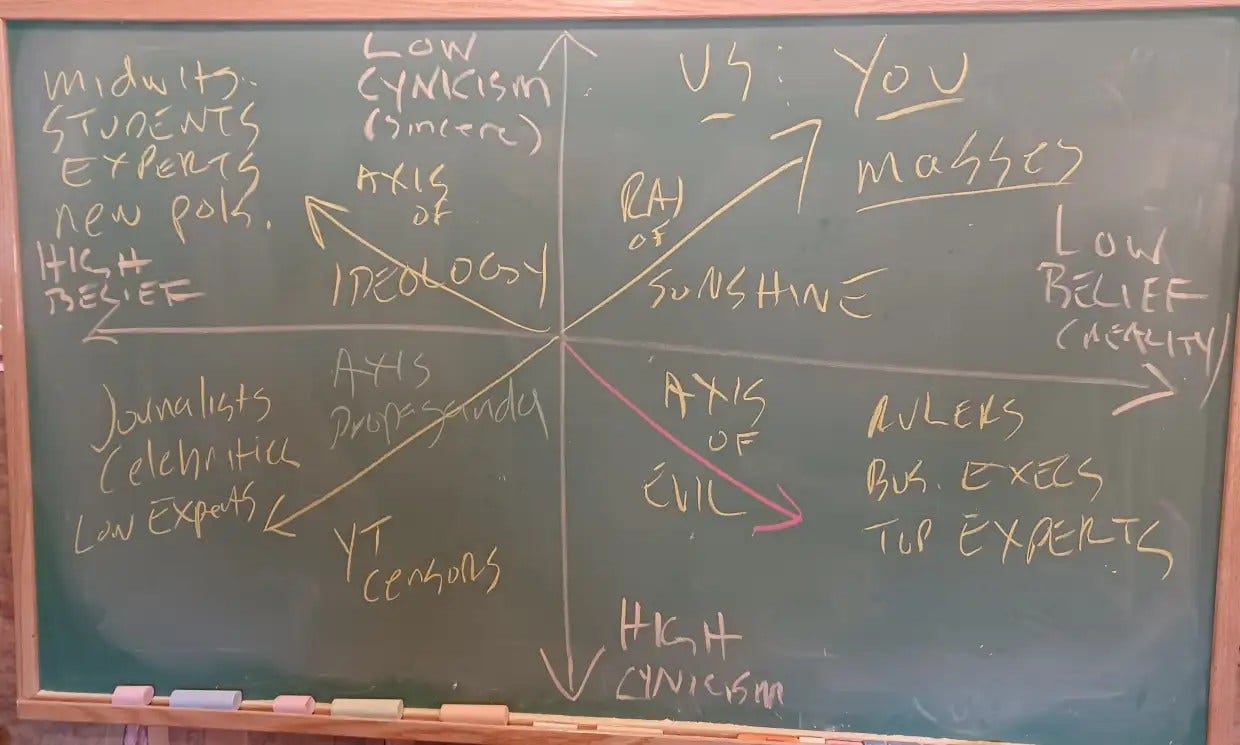 midwits.
STUDENTS
EXPERTS
new pols.
HIGH
BELIEF
LOW
CYNICISM
(sincere)
AXIS
OF
IDEOLOGY
US: YOU
masses
RAY
OF
SUNSHINE
LOW
BELIEF
(REALITY)
AXIS
Propaganda
Journalists
Celebrities
Low Experts
YT
Censors
AXIS
OF
EVIL
RULERS
BUS. EXECS
TOP EXPERTS
HIGH
CYNICISM